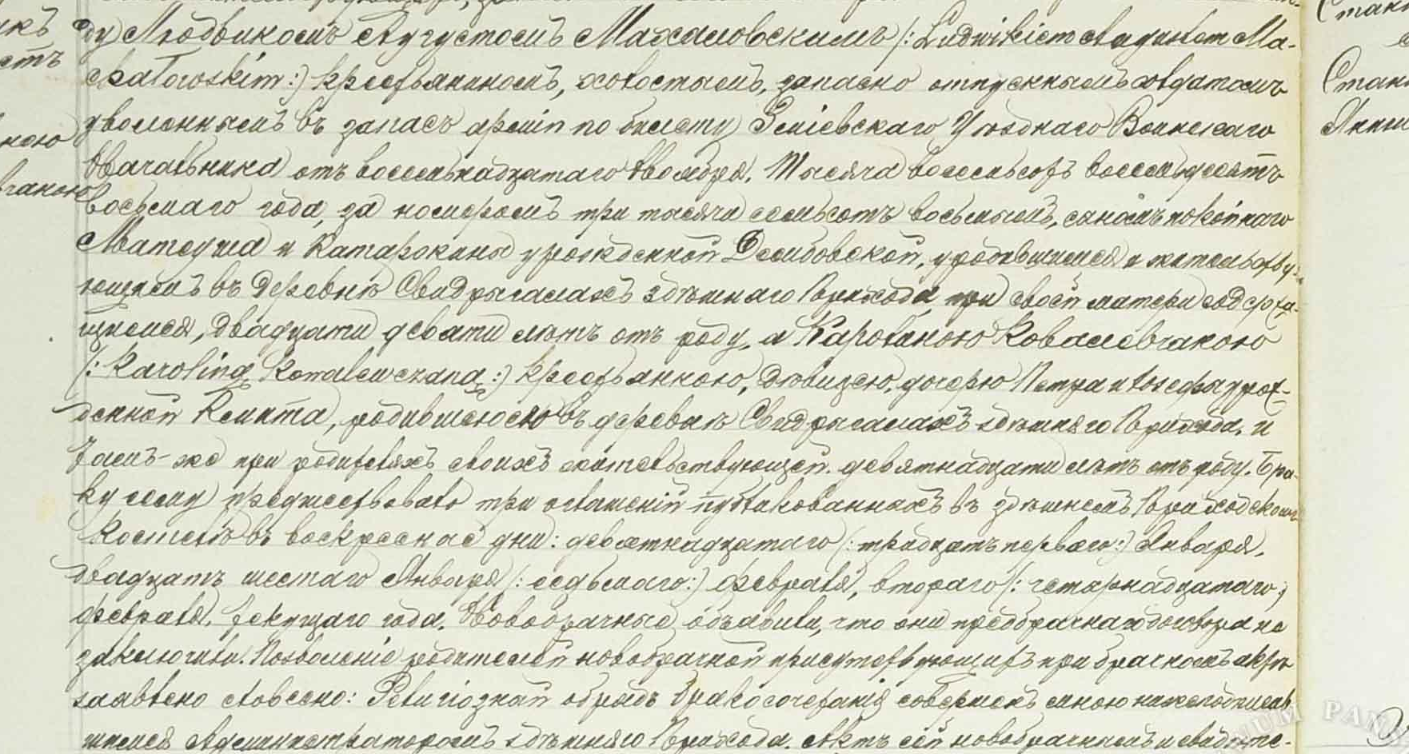 ду Людвикомъ Августомъ Махаловскимъ /: Ludwikiem Augustem Ma-
chałowskim :/ крестьяниномъ, холостымъ, запасно отпускнымъ солдатомъ
уволеннымъ въ запасъ арміи по билету Зміевскаго Уѣзднаго Воинскаго
Начальника отъ восемьнадцатаго Ноября, Тысяча восемьсотъ восемьдесятъ
восьмаго года, за номеромъ три тысячи семьсотъ восьмымъ, сыномъ покойнаго
Матеуша и Катаржины урожденной, уродившимся и жительству-
ющимъ въ деревнѣ Свидрыгалахъ здѣшнаго Прихода, при своей матери содержа-
щимся, двадцати девяти лѣтъ отъ роду, а Каролиною Ковалевчаною
/: Karoliną Kowalewczaną :/ крестьянкою, дѣвицею, дочерью Петра и Іозефы урож-
денной Ремита, родившеюсею въ деревнѣ Свидрыгалахъ здѣшняго Прихода, и
тамъ-же при родителяхъ своихъ жительствующей, девятнадцати лѣтъ отъ роду. Бра-
ку сему предшествовало три оглашеній публикованныхъ въ здѣшнемъ Приходскомъ
Костелѣ въ воскресные дни: девятнадцатаго /: тридцать перваго :/ Января,
двадцать шестаго Января /: седьмаго :/ февраля, втораго /: четырнадцатаго :/
февраля, текущаго года. Новобрачные объявили, что они предбрачнаго договора не
заключили. Позволеніе родителей новобрачной присутствующихъ при брачномъ актѣ
заявлено словесно: Религіозной обрядъ бракосочетанія совершенъ мною нижеподписав
шимся Администраторомъ здѣшняго Прихода. Актъ сей новобрачнымъ и свидѣте-